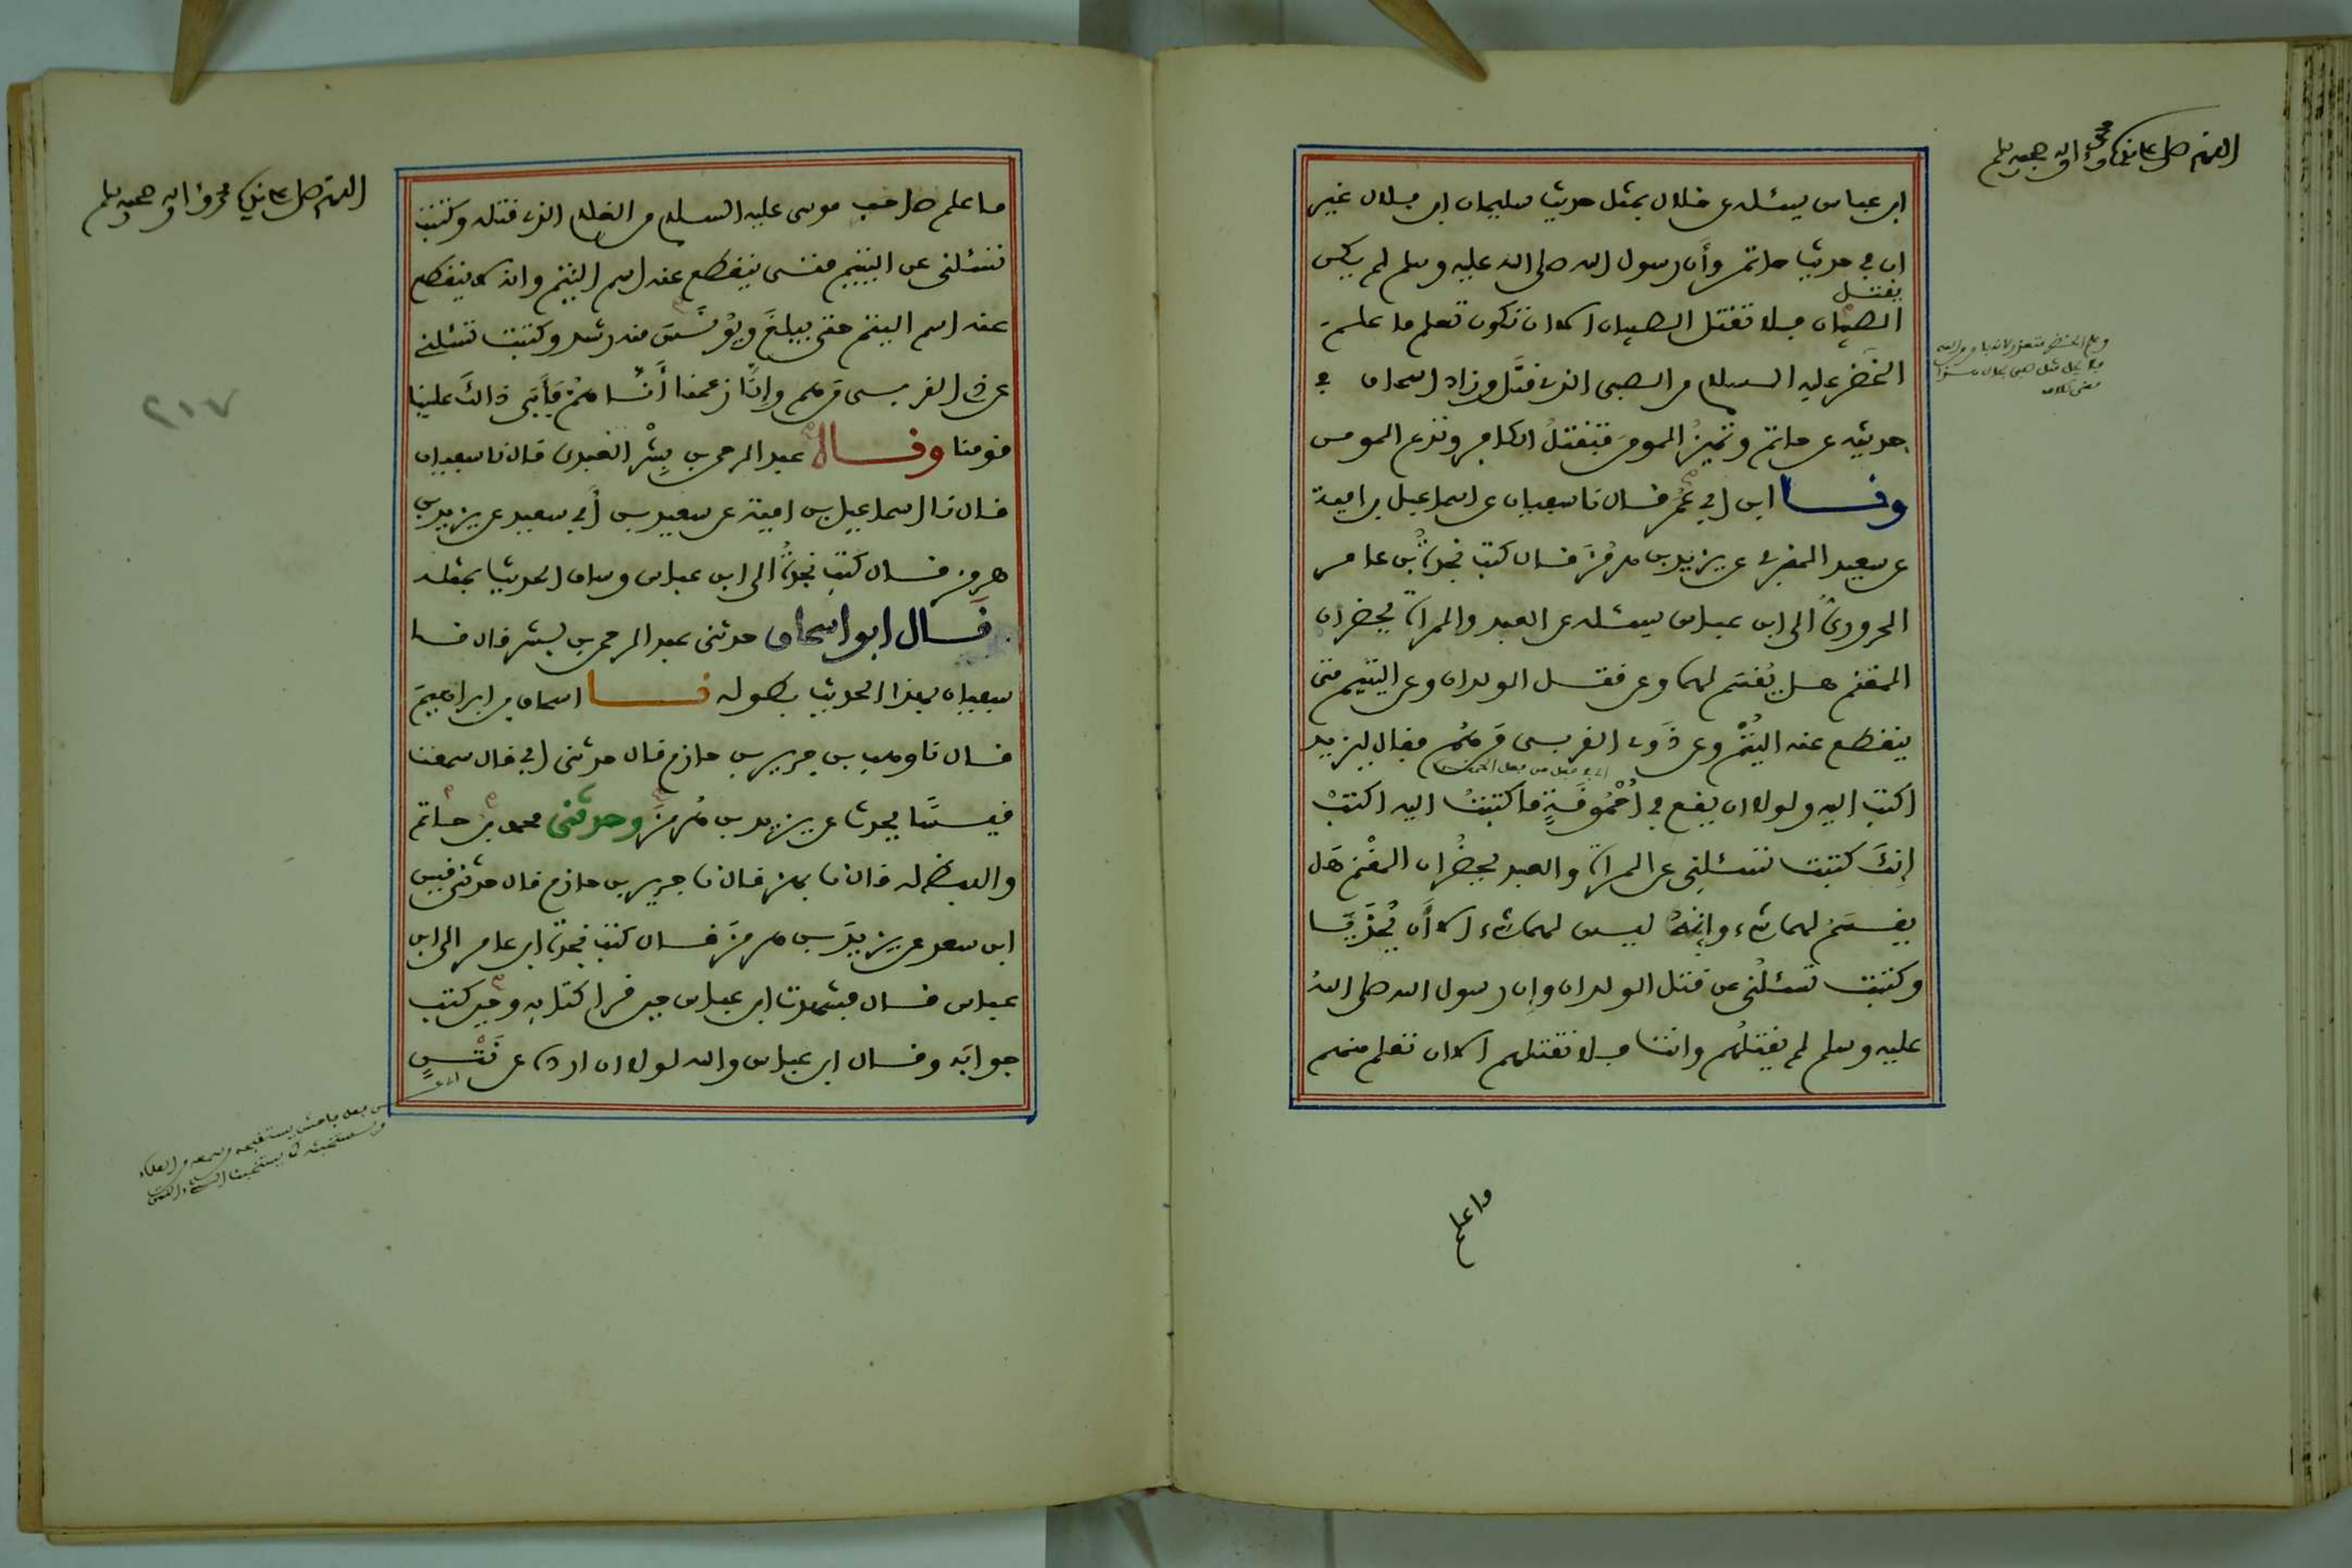 اللهم صل على نبيك محمد وءاله وصحبه وسلم
ابن عباس يسئله عن خلال بمثل حديث سليمان ابن بلال غير
ان في حديث حاتم وأن رسول الله صلى الله عليه وسلم لم يكن
يقتل
الصبيان فلا تقتل الصبيان الا ان تكون تعلم ما علم
الخضر عليه السلام من الصبي الذي قتل وزاد اسحاق في
حديثه عن حاتم وتميز المومن فتقتل الكافر وتدع المومن
ونا ابن ابي عمر قال نا سفيان عن اسماعيل بن امية
عن سعيد المقبري عن يزيد بن هرمز قال كتب نجدة بن عامر
الحروري الى ابن عباس يسئله عن العبد والمرأة يحضران
المغنم هل يقسم لهما وعن قتل الولدان وعن اليتيم متى
ينقطع عنه اليتم وعن ذوي القربى من هم فقال ليزيد
اكتب اليه ولولا ان يقع في أحموقة ما كتبت اليه اكتب
إنك كتبت تسئلني عن المرأة والعبد يحضران المغنم هل
يقسم لهما شيء وإنه ليس لهما شيء الا أن يحذيا
وكتبت تسئلني عن قتل الولدان وإن رسول الله صلى الله
عليه وسلم لم يقتلهم وانت فلا تقتلهم الا ان تعلم منهم
واعلم
اللهم صل على نبيك محمد وءاله وصحبه وسلم
ما علم صاحب موسى عليه السلام من الغلام الذي قتله وكتبت
تسئلني عن اليتيم متى ينقطع عنه اسم اليتم وانه لا ينقطع
عنه اسم اليتم حتى يبلغ ويونس منه رشد وكتبت تسئلني
عن ذوي القربى من هم وإنا زعمنا أنا هم فأبى ذالك علينا
قومنا وناه عبد الرحمن بن بشر العبدي قال نا سفيان
قال نا اسماعيل بن امية عن سعيد بن أبي سعيد عن يزيد بن
هرمز قال كتب نجدة الى ابن عباس وساق الحديث بمثله
قال ابو اسحاق حدثني عبد الرحمن بن بشر قال نا
سفيان بهذا الحديث بطوله نا اسحاق بن ابراهيم
قال نا وهب بن جرير بن حازم قال حدثني ابي قال سمعت
قيسا يحدث عن يزيد بن هرمز وحدثني محمد بن حاتم
واللفظ له قال نا بهز قال نا جرير بن حازم قال حدثني قيس
ابن سعد عن يزيد بن هرمز قال كتب نجدة ابن عامر الى ابن
عباس قال فشهدت ابن عباس حين قرا كتابه وحين كتب
جوابه وقال ابن عباس والله لولا ان ارده عن نتن
٢١٧